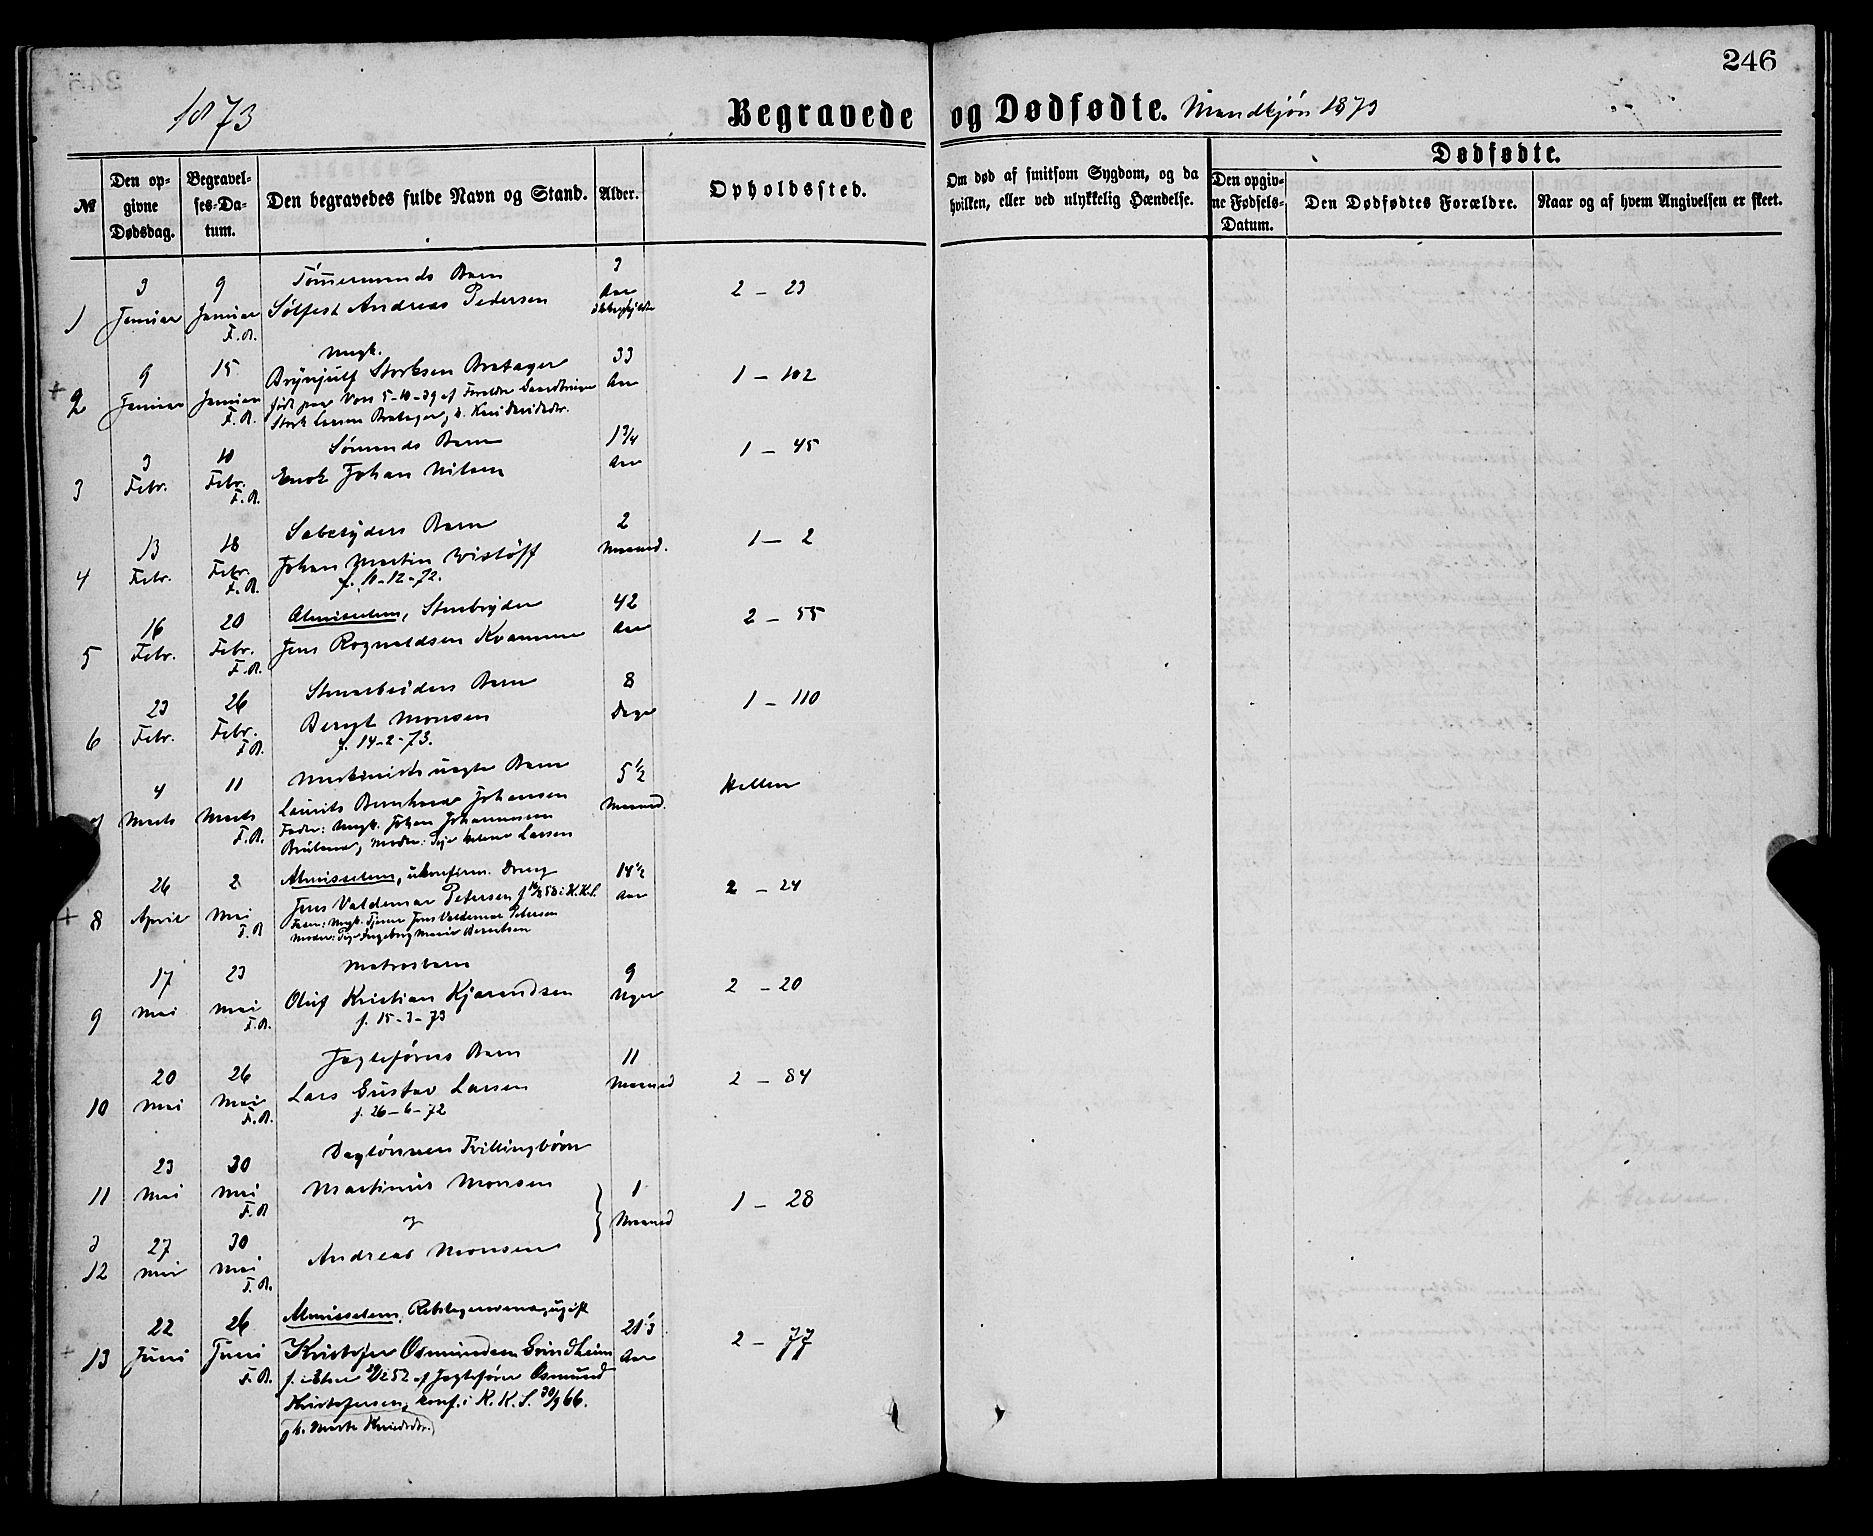 246
1873
Begravede og Dødfødte. Mandkjøn 1873
№
Den opgivne Dødsdag.
Begravelses-Datum.
Den begravedes fulde Navn og Stand.
Alder.
Opholdssted.
Om død af smitsom Sygdom, og da hvilken, eller ved ulykkelig Hændelse.
Dødfødte.
Den opgivne Fødsels-Datum.
Den Dødfødtes Forældre.
Naar og af hvem Angivelsen er skeet.
3 9 Tömermands Barn 3
1 Januar Januar Sölfest Andreas Pedersen Aar 2 – 23
F.B.
Ungk.
9 15 Brynjulf Storksen Bratager 33
+ 2 Januar Januar født paa Voss 5-10-39 af Foreldre Aar 1 – 102
F.B. Stork Larsen Bratager, h.
3 10 Sömands Barn 1 3/4
3 Febr. Febr. Enok Johan Nilsen Aar 1 – 45
F.B.
13 18 Barn 2
4 Febr. Febr. Johan Martin Maaned. 1 – 2
F.B. f. 10-12-72.
16 20 Almisselem, 42
5 Febr. Febr. Jens Rognaldsen Kvamme Aar 2 – 55
F.B.
23 26 Stenarbeiders Barn 8
6 Febr. Febr. Berent Monsen Dage 1 – 110
F.B. f. 14-2-73.
4 11 Barn 5 1/2
7 Marts Marts Laurits Bernhard Johansen Maaned. Hellen
F.B. Fader: Ungk. Johan Johannessen
Moder: Pige Larsen
26 2 Almisselem, ukonfirm. Dreng 14 1/2
+ 8 April Mai Jens Valdemar Petersen Aar 2 – 24
F.B. Fader: Ungk. Tjener Jens Valdemar Petersen
Moder: Pige Ingeborg Marie Berentsen
17 23 Matrosbarn 9
9 Mai Mai Oluf Kristian Kjarandsen Uger 2 – 20
F.B. f. 15-3-73
20 26 Jagteförers Barn 11
10 Mai Mai Lars Gustav Larsen Maaned 2 – 84
F.B. f. 26-6-72
23 30 Daglönners Tvillingbörn
11 Mai Mai Martinus Monsen 1
F.B. og Maaned 1 – 28
27 30
12 Mai Mai Andreas Monsen
F.B.
22 26 Almisselem, ugift 21 1/3
+ 13 Juni Juni Kristofer Osmundsen Grindheim Aar 2 – 77
F.B. f. i Etne 52 af Jagtefører Osmund
Kristofersen, konf. i K. K. S. 30/9 66.